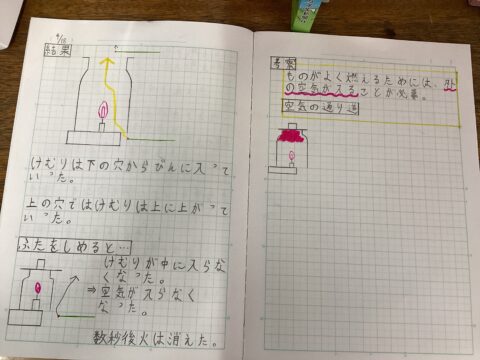 4/18
結果
けむりは下の穴からびんに入って
いった。
上の穴ではけむりは上に上がって
いった。
ふたをしめると…
けむりが中に入らな
くなった。
⇒空気が入らなく
なった。
数秒後火は消えた。
考察
ものがよく燃えるためには、外
の空気が入ることが必要。
空気の通り道